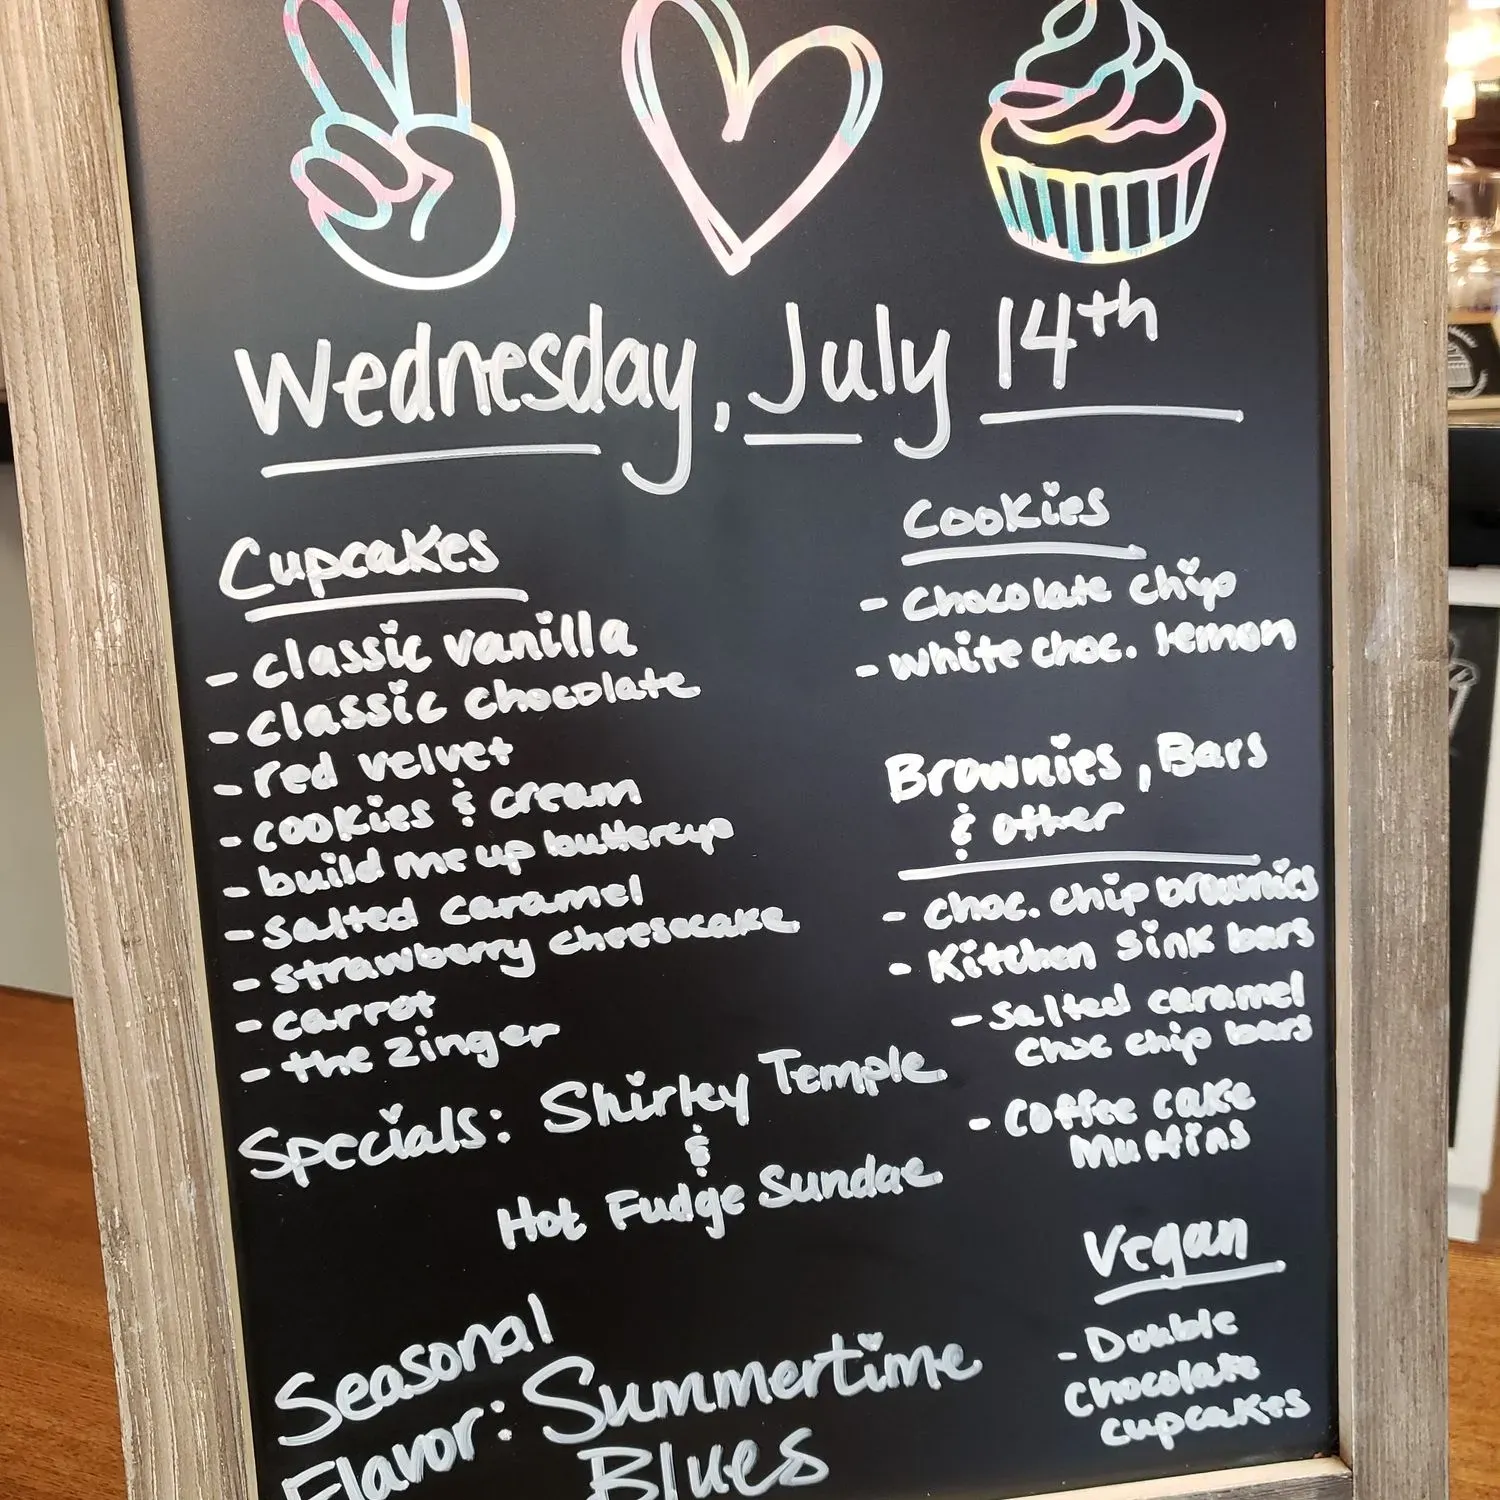 Wednesday, July 14th
Cupcakes
- classic vanilla
- classic chocolate
- red velvet
- cookies & cream
- build me up buttercup
- salted caramel
- strawberry cheesecake
- carrot
- the zinger
Specials: Shirley Temple
&
Hot Fudge Sundae
Seasonal
Flavor: Summertime
Blues
Cookies
- Chocolate chip
- white choc. lemon
Brownies, Bars
& other
- choc. chip brownies
- Kitchen sink bars
- salted caramel
choc chip bars
- Coffee cake
Muffins
Vegan
- Double
Chocolate
cupcakes